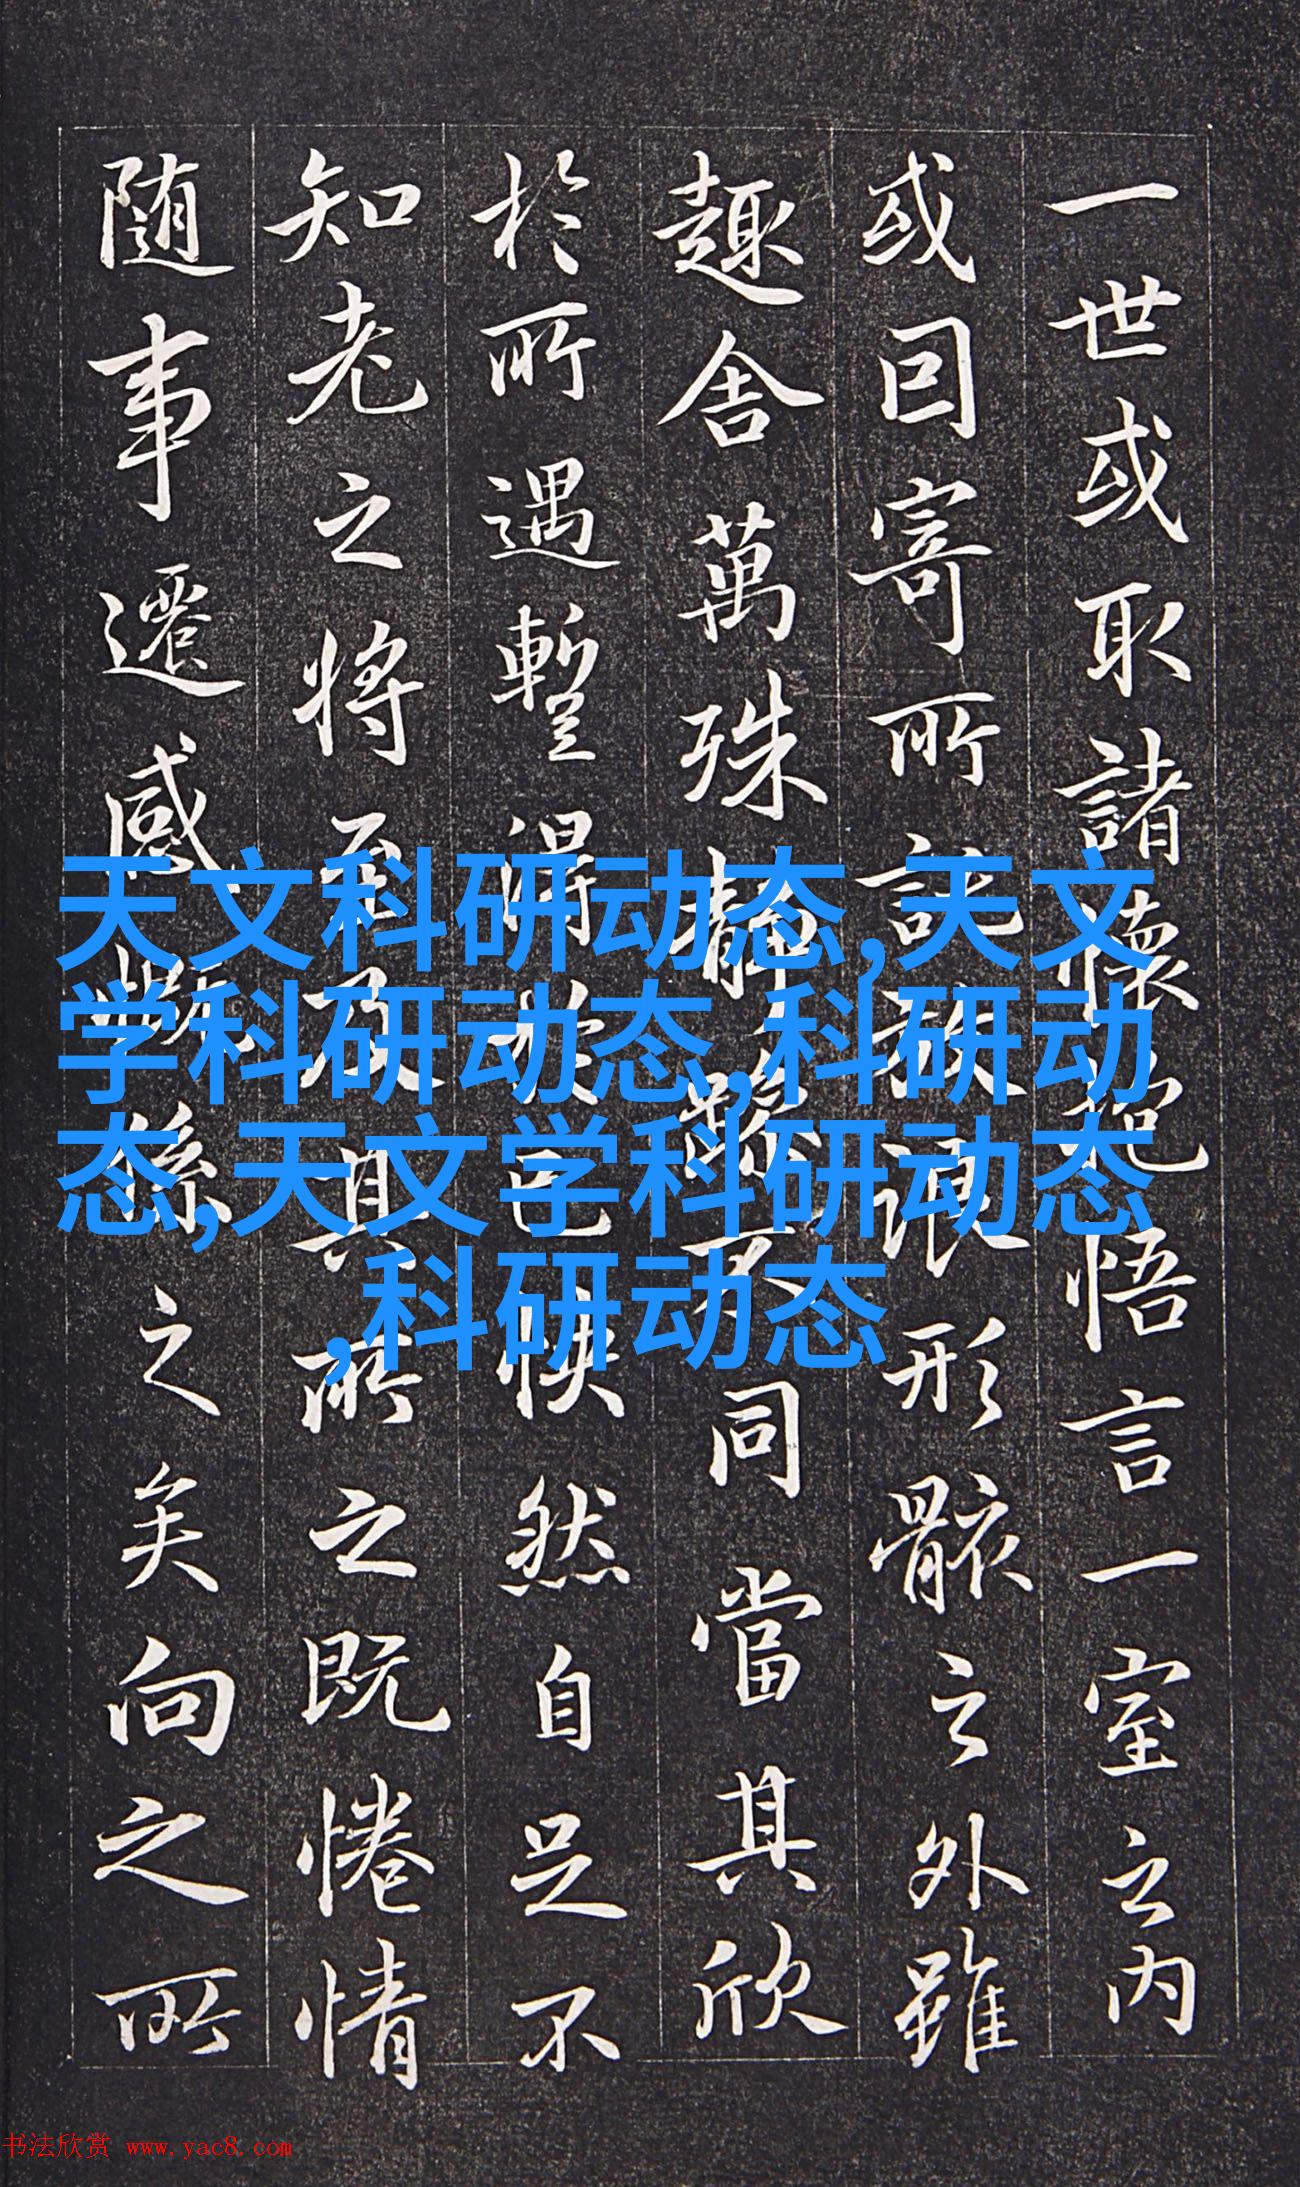 一世或取諸懷抱悟言一室之内
或囙寄所託放浪形骸之外雖
趣舍萬殊静躁不同當其欣
於所遇暫得於己快然自足不
知老之將至及其所之既惓情
随事遷感慨係之矣向之所
天文科研动态,天文
学科研动态,科研动
态,天文学科研动态
,科研动态
书法欣赏 www.yac8.com